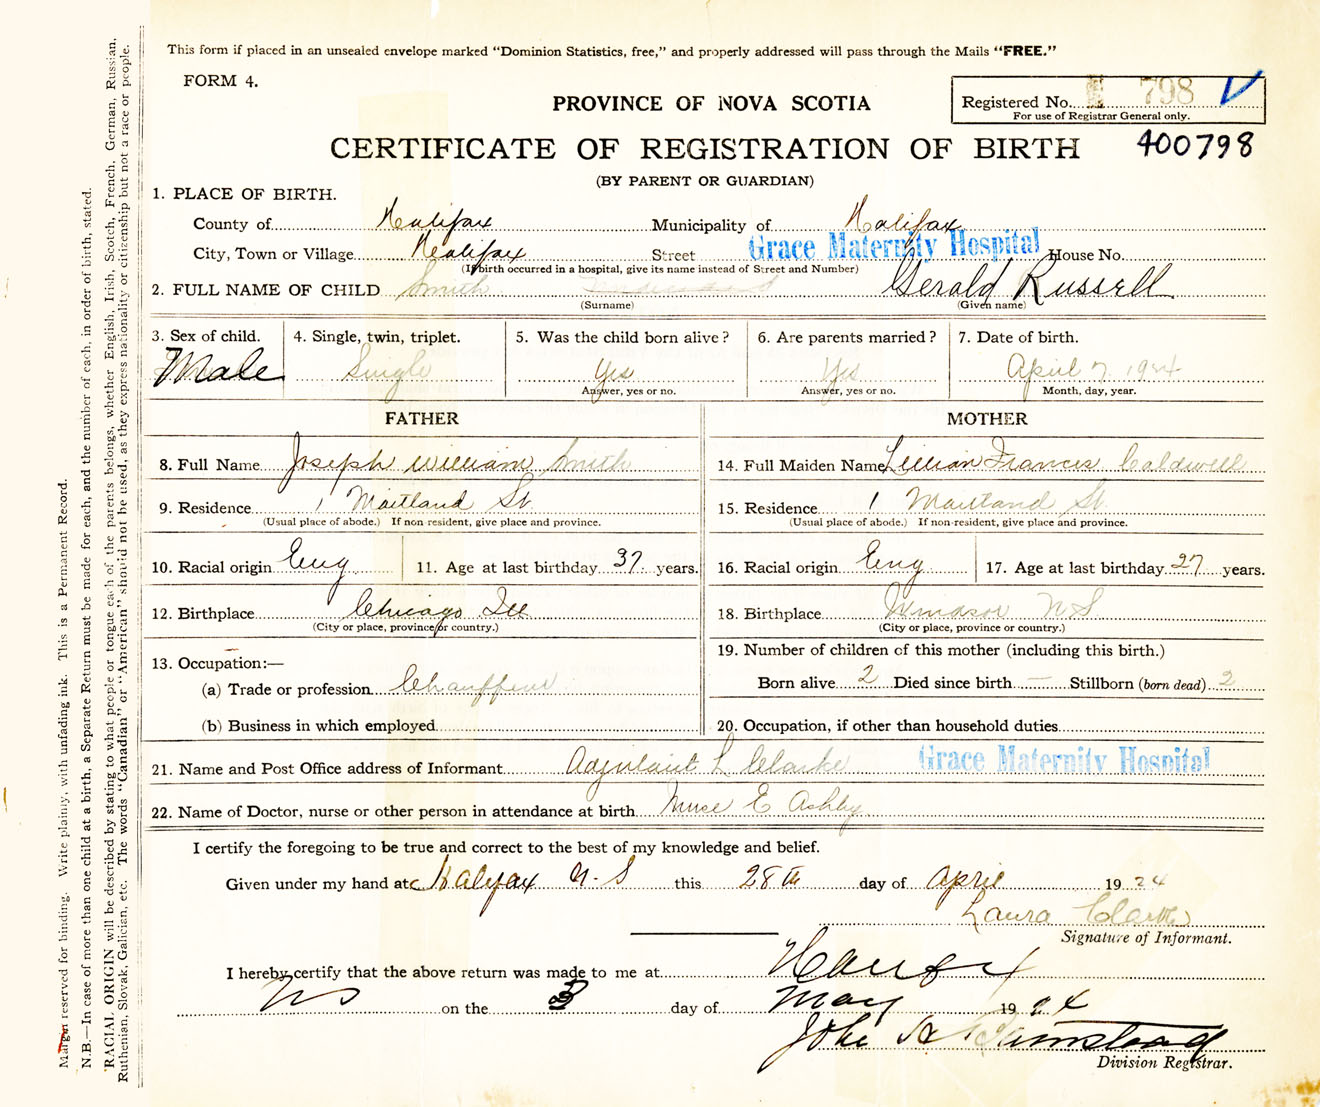 This form if placed in an unsealed envelope marked “Dominion Statistics, free,” and properly addressed will pass through the Mails “FREE.”
FORM 4.
PROVINCE OF NOVA SCOTIA
Registered No. 798
For use of Registrar General only.
CERTIFICATE OF REGISTRATION OF BIRTH 400798
(BY PARENT OR GUARDIAN)
1. PLACE OF BIRTH.
County of Halifax Municipality of Halifax
City, Town or Village Halifax Street Grace Maternity Hospital House No.
(If birth occurred in a hospital, give its name instead of Street and Number)
2. FULL NAME OF CHILD Smith Gerald Russell
(Surname) (Given name)
3. Sex of child. 4. Single, twin, triplet. 5. Was the child born alive? 6. Are parents married? 7. Date of birth.
Male Single Yes Yes April 7. 1924
Answer, yes or no. Answer, yes or no. Month, day, year.
FATHER MOTHER
8. Full Name Joseph William Smith 14. Full Maiden Name Lillian Francis Caldwell
9. Residence 1 Maitland St 15. Residence 1 Maitland St.
(Usual place of abode.) If non resident, give place and province. (Usual place of abode.) If non-resident, give place and province.
10. Racial origin Eng 11. Age at last birthday 37 years. 16. Racial origin Eng 17. Age at last birthday 27 years.
12. Birthplace Chicago Ill 18. Birthplace Windsor N S
(City or place, province or country.) (City or place, province or country.)
13. Occupation:— 19. Number of children of this mother (including this birth.)
(a) Trade or profession Chauffeur Born alive 2 Died since birth — Stillborn (born dead) 2
(b) Business in which employed 20. Occupation, if other than household duties
21. Name and Post Office address of Informant Adjutant L Clarke Grace Maternity Hospital
22. Name of Doctor, nurse or other person in attendance at birth Nurse E Ashby
I certify the foregoing to be true and correct to the best of my knowledge and belief.
Given under my hand at Halifax N.S this 28th day of April 1924
Laura Clarke
Signature of Informant.
I hereby certify that the above return was made to me at Halifax
NS on the 3 day of May 1924
John A
Division Registrar.
Margin reserved for binding. Write plainly, with unfading ink. This is a Permanent Record.
N.B.—In case of more than one child at a birth, a Separate Return must be made for each, and the number of each, in order of birth, stated.
RACIAL ORIGIN will be described by stating to what people or tongue each of the parents belongs, whether English, Irish, Scotch, French, German, Russian,
Ruthenian, Slovak, Galician, etc. The words “Canadian” or “American” should not be used, as they express nationality or citizenship but not a race or people.